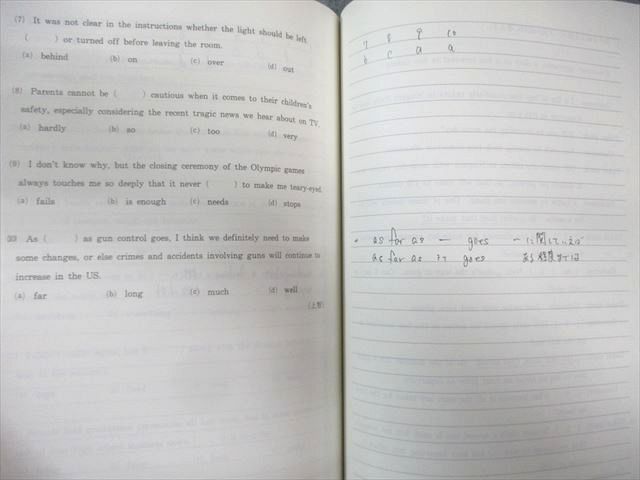 (7) It was not clear in the instructions whether the light should be left
( ) or turned off before leaving the room.
(a) behind (b) on (c) over (d) out
(8) Parents cannot be ( ) cautious when it comes to their children's
safety, especially considering the recent tragic news we hear about on TV.
(a) hardly (b) so (c) too (d) very
(9) I don't know why, but the closing ceremony of the Olympic games
always touches me so deeply that it never ( ) to make me teary-eyed.
(a) fails (b) is enough (c) needs (d) stops
(10) As ( ) as gun control goes, I think we definitely need to make
some changes, or else crimes and accidents involving guns will continue to
increase in the US.
(a) far (b) long (c) much (d) well
(上智)
7 8 9 10
b c a a
・ as far as ー goes ーに関していえば
as far as it goes ある程度までは